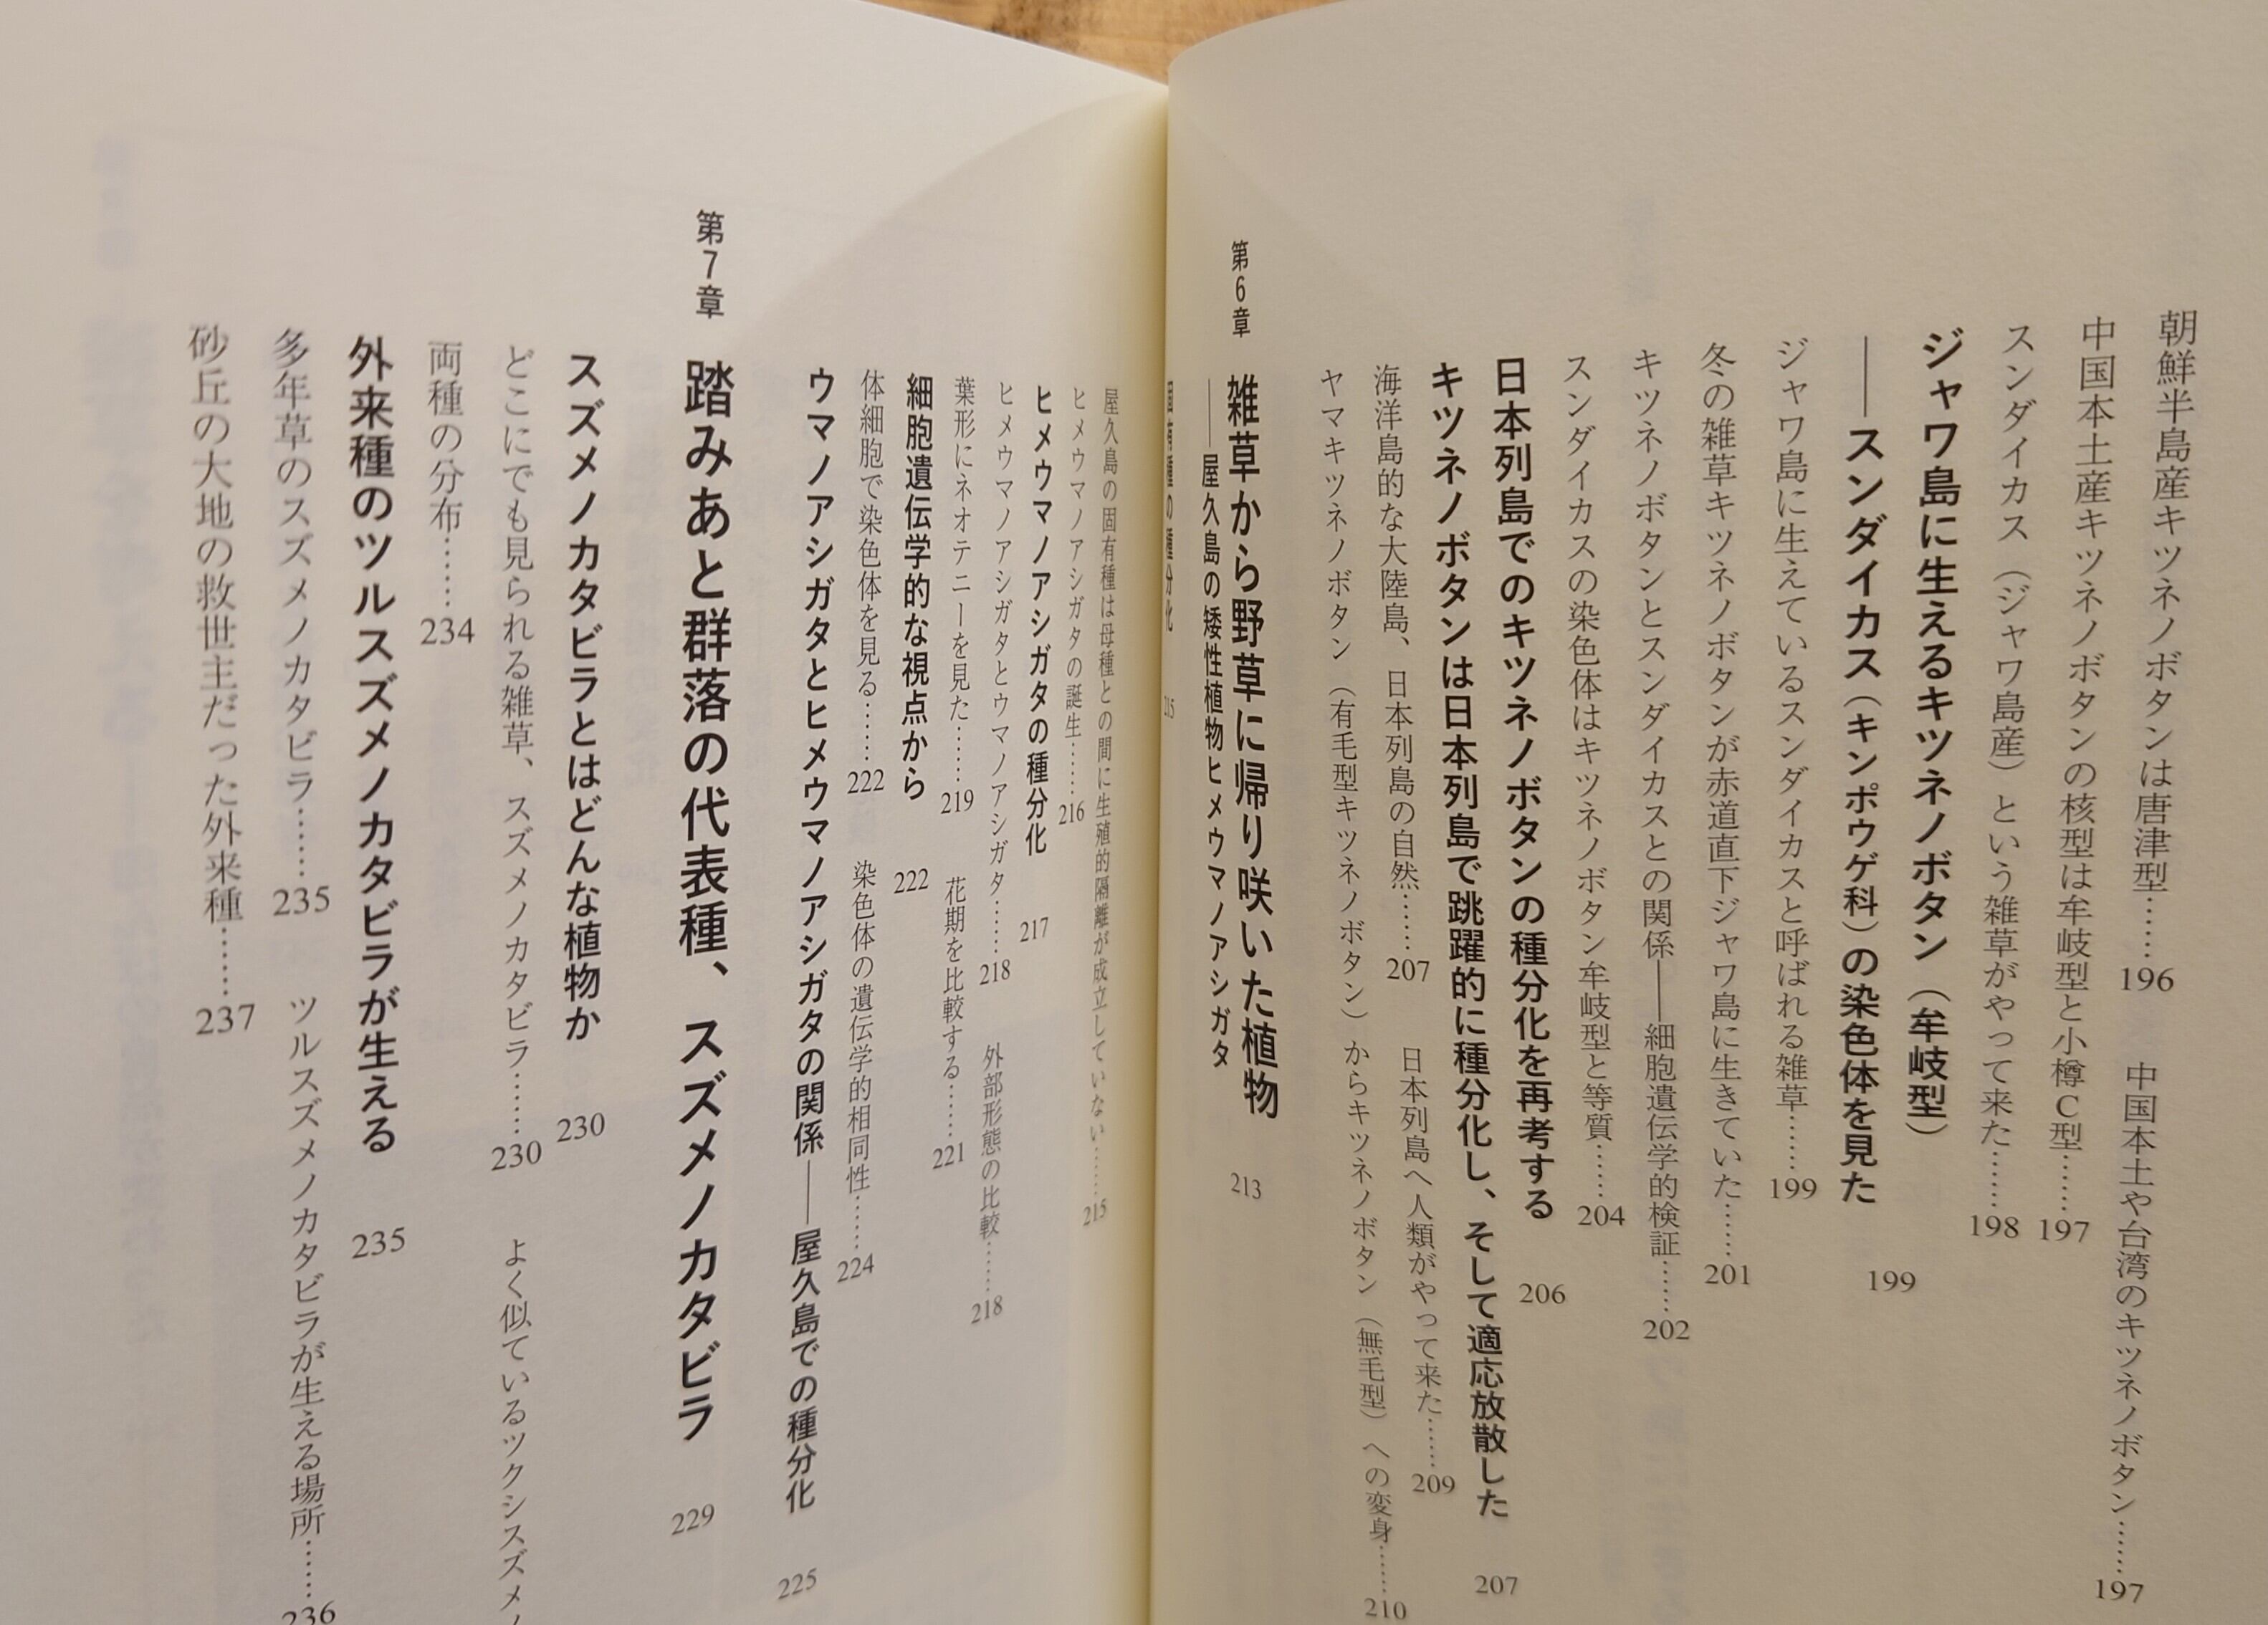 朝鮮半島産キツネノボタンは唐津型……196　中国本土や台湾のキツネノボタン……197
中国本土産キツネノボタンの核型は牟岐型と小樽C型……197
スンダイカス（ジャワ島産）という雑草がやって来た……198
ジャワ島に生えるキツネノボタン（牟岐型）
――スンダイカス（キンポウゲ科）の染色体を見た　199
ジャワ島に生えているスンダイカスと呼ばれる雑草……199
冬の雑草キツネノボタンが赤道直下ジャワ島に生きていた……201
キツネノボタンとスンダイカスとの関係――細胞遺伝学的検証……202
スンダイカスの染色体はキツネノボタン牟岐型と等質……204
日本列島でのキツネノボタンの種分化を再考する　206
キツネノボタンは日本列島で跳躍的に種分化し、そして適応放散した　207
海洋島的な大陸島、日本列島の自然……207　日本列島へ人類がやって来た……209
ヤマキツネノボタン（有毛型キツネノボタン）からキツネノボタン（無毛型）への変身……210
第6章　雑草から野草に帰り咲いた植物　213
――屋久島の矮性植物ヒメウマノアシガタ
固有種の種分化　215
屋久島の固有種は母種との間に生殖的隔離が成立していない……215
ヒメウマノアシガタの誕生……216
ヒメウマノアシガタの種分化　217
ヒメウマノアシガタとウマノアシガタ……218　外部形態の比較……218
葉形にネオテニーを見た……219　花期を比較する……221
細胞遺伝学的な視点から　222
体細胞で染色体を見る……222　染色体の遺伝学的相同性……224
ウマノアシガタとヒメウマノアシガタの関係――屋久島での種分化　225
第7章　踏みあと群落の代表種、スズメノカタビラ　229
スズメノカタビラとはどんな植物か　230
どこにでも見られる雑草、スズメノカタビラ……230　よく似ているツクシスズメノ
両種の分布……234
外来種のツルスズメノカタビラが生える　235
多年草のスズメノカタビラ……235　ツルスズメノカタビラが生える場所……236
砂丘の大地の救世主だった外来種……237